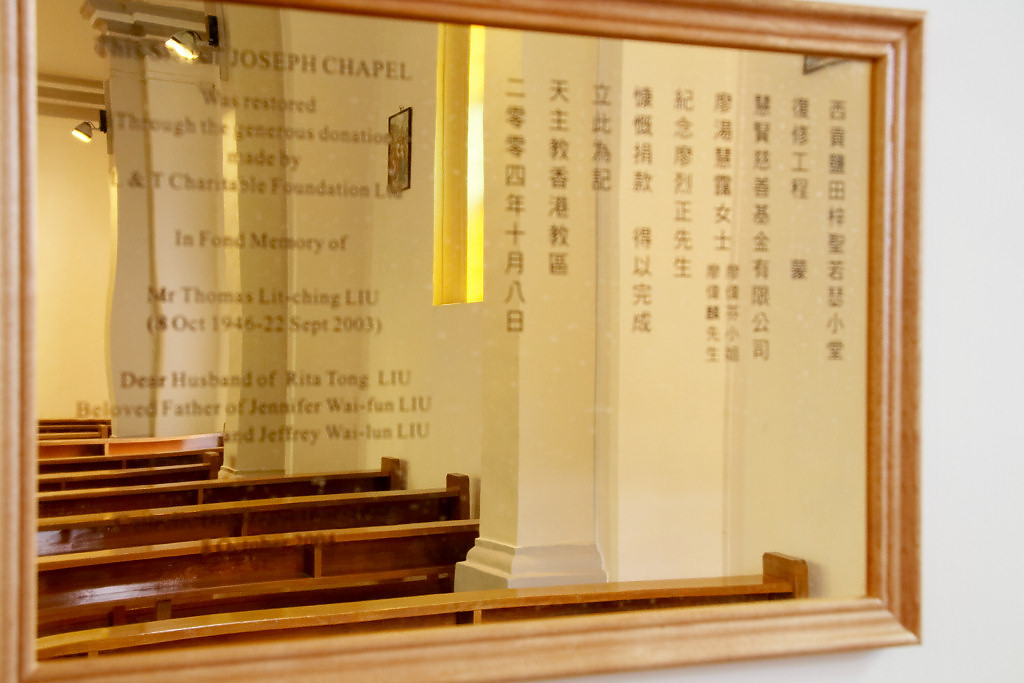 JOSEPH CHAPEL
Was restored
Through the generous donation
made by
& T Charitable Foundation Ltd
In Fond Memory of
Mr Thomas Lit-ching LIU
(8 Oct 1946-22 Sept 2003)
Dear Husband of Rita Tong LIU
Beloved Father of Jennifer Wai-fun LIU
and Jeffrey Wai-lun LIU
西貢鹽田梓聖若瑟小堂
復修工程 蒙
慧賢慈善基金有限公司
廖湯慧靄女士 廖偉芬小姐
廖偉麟先生
紀念廖烈正先生
慷慨捐款 得以完成
立此為記
天主教香港教區
二零零四年十月八日